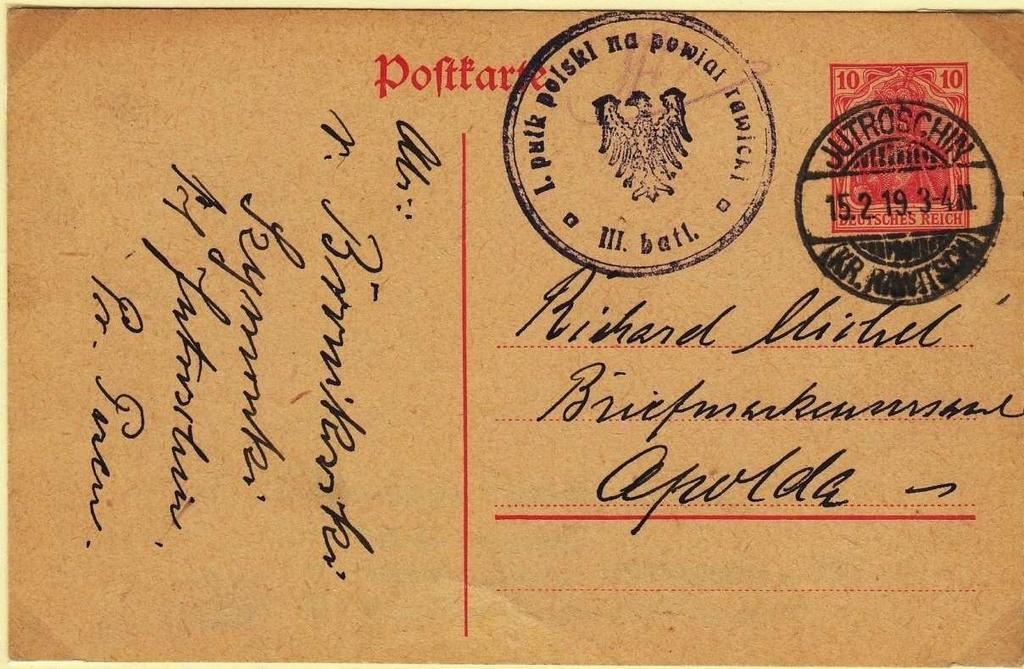 Postkarte
1. pułk polski na powiat rawicki
III. batl.
10 10
DEUTSCHES REICH
JUTROSCHIN
15.2.19.3-4N.
(KR. RAWITSCH)
Richard Michel
Briefmarkenversand
Apolda
Abs:
v.
Szymonki
Jutroschin
Pr. Posen.